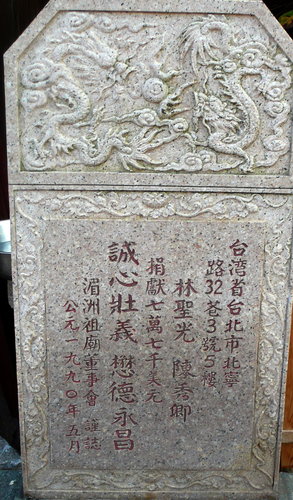 台湾省台北市北寧
路32巷3號5樓
林聖光 陳秀卿
捐獻七萬七千美元
誠心壯義 懋德永昌
湄洲祖廟董事會 謹誌
公元一九九〇年五月